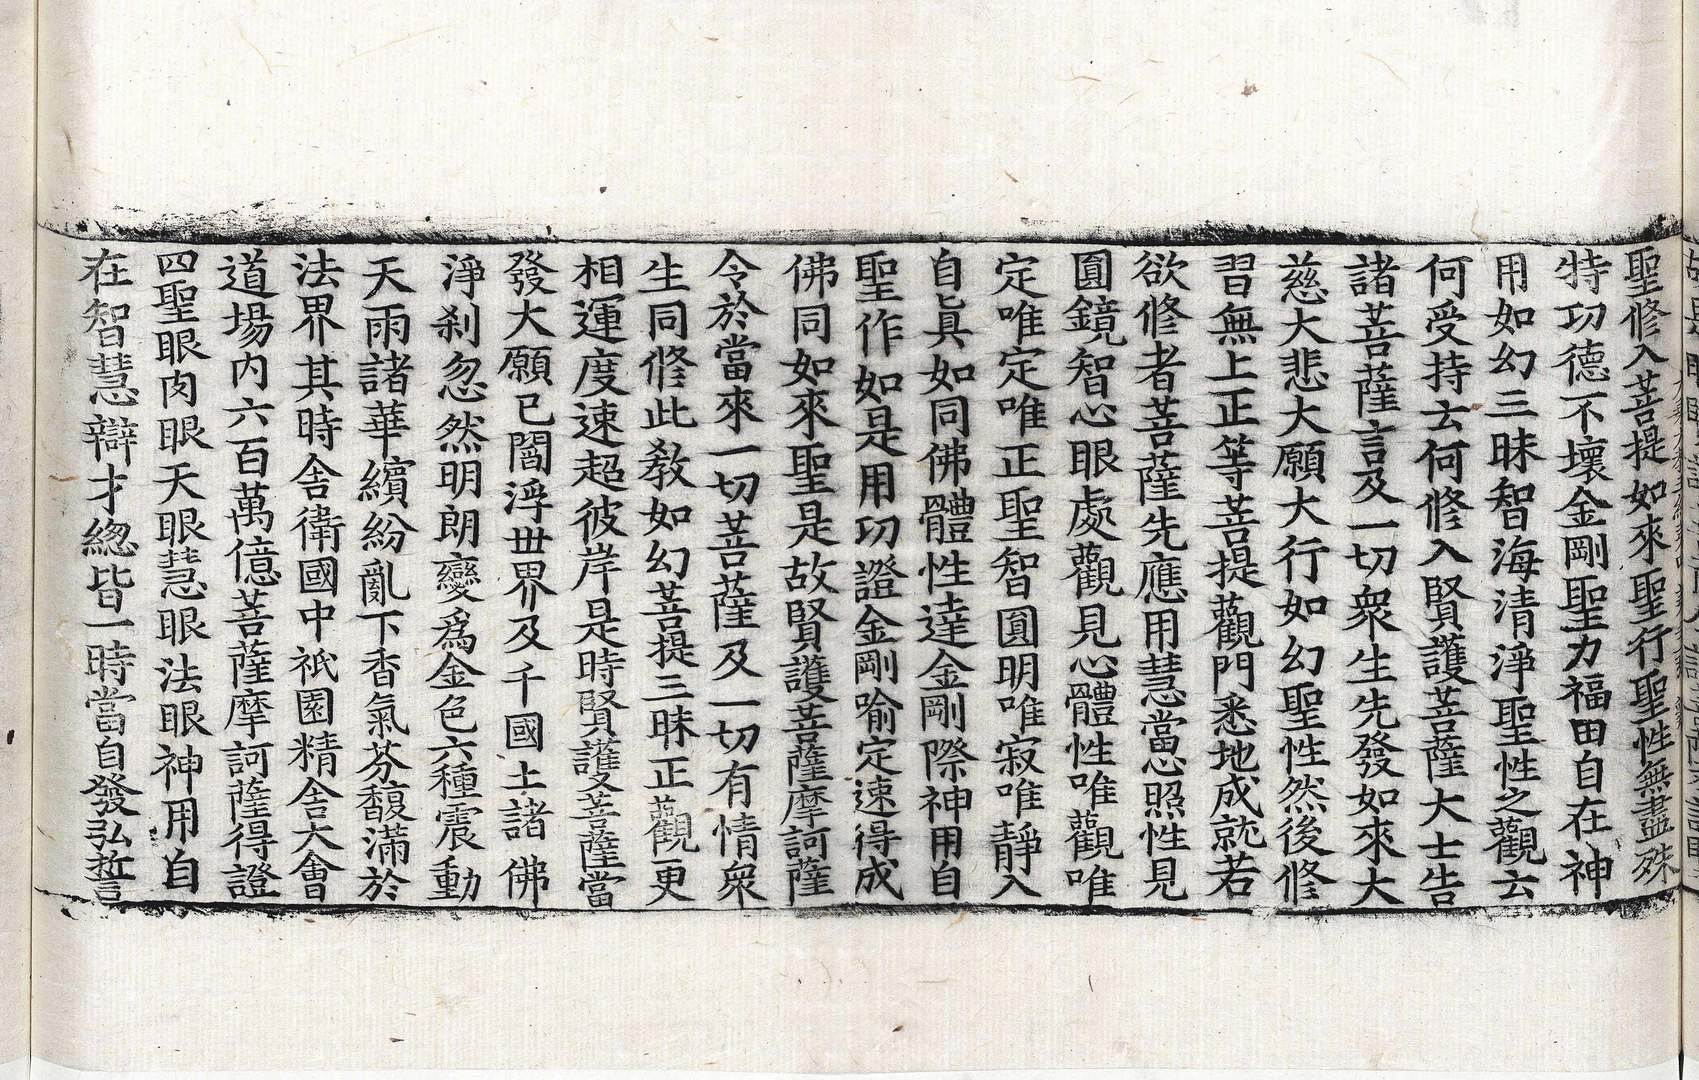 聖修入菩提如來聖行聖性無盡殊
特功德不壞金剛聖力福田自在神
用如幻三昧智海清淨聖性之觀云
何受持云何修入賢護菩薩大士告
諸菩薩言及一切衆生先發如來大
慈大悲大願大行如幻聖性然後修
習無上正等菩提觀門悉地成就若
欲修者菩薩先應用慧當照性見
圓鏡智心眼處觀見心體性唯觀唯
定唯定唯正聖智圓明唯寂唯靜入
自眞如同佛體性達金剛際神用自
聖作如是用功證金剛喻定速得成
佛同如來聖是故賢護菩薩摩訶薩
令於當來一切菩薩及一切有情衆
生同修此教如幻菩提三昧正觀更
相運度速超彼岸是時賢護菩薩當
發大願已閻浮世界及千國土諸佛
淨刹忽然明朗變爲金色六種震動
天雨諸華繽紛亂下香氣芬馥滿於
法界其時舍衛國中祇園精舍大會
道場内六百萬億菩薩摩訶薩得證
四聖眼肉眼天眼慧眼法眼神用自
在智慧辯才總皆一時當自發弘誓